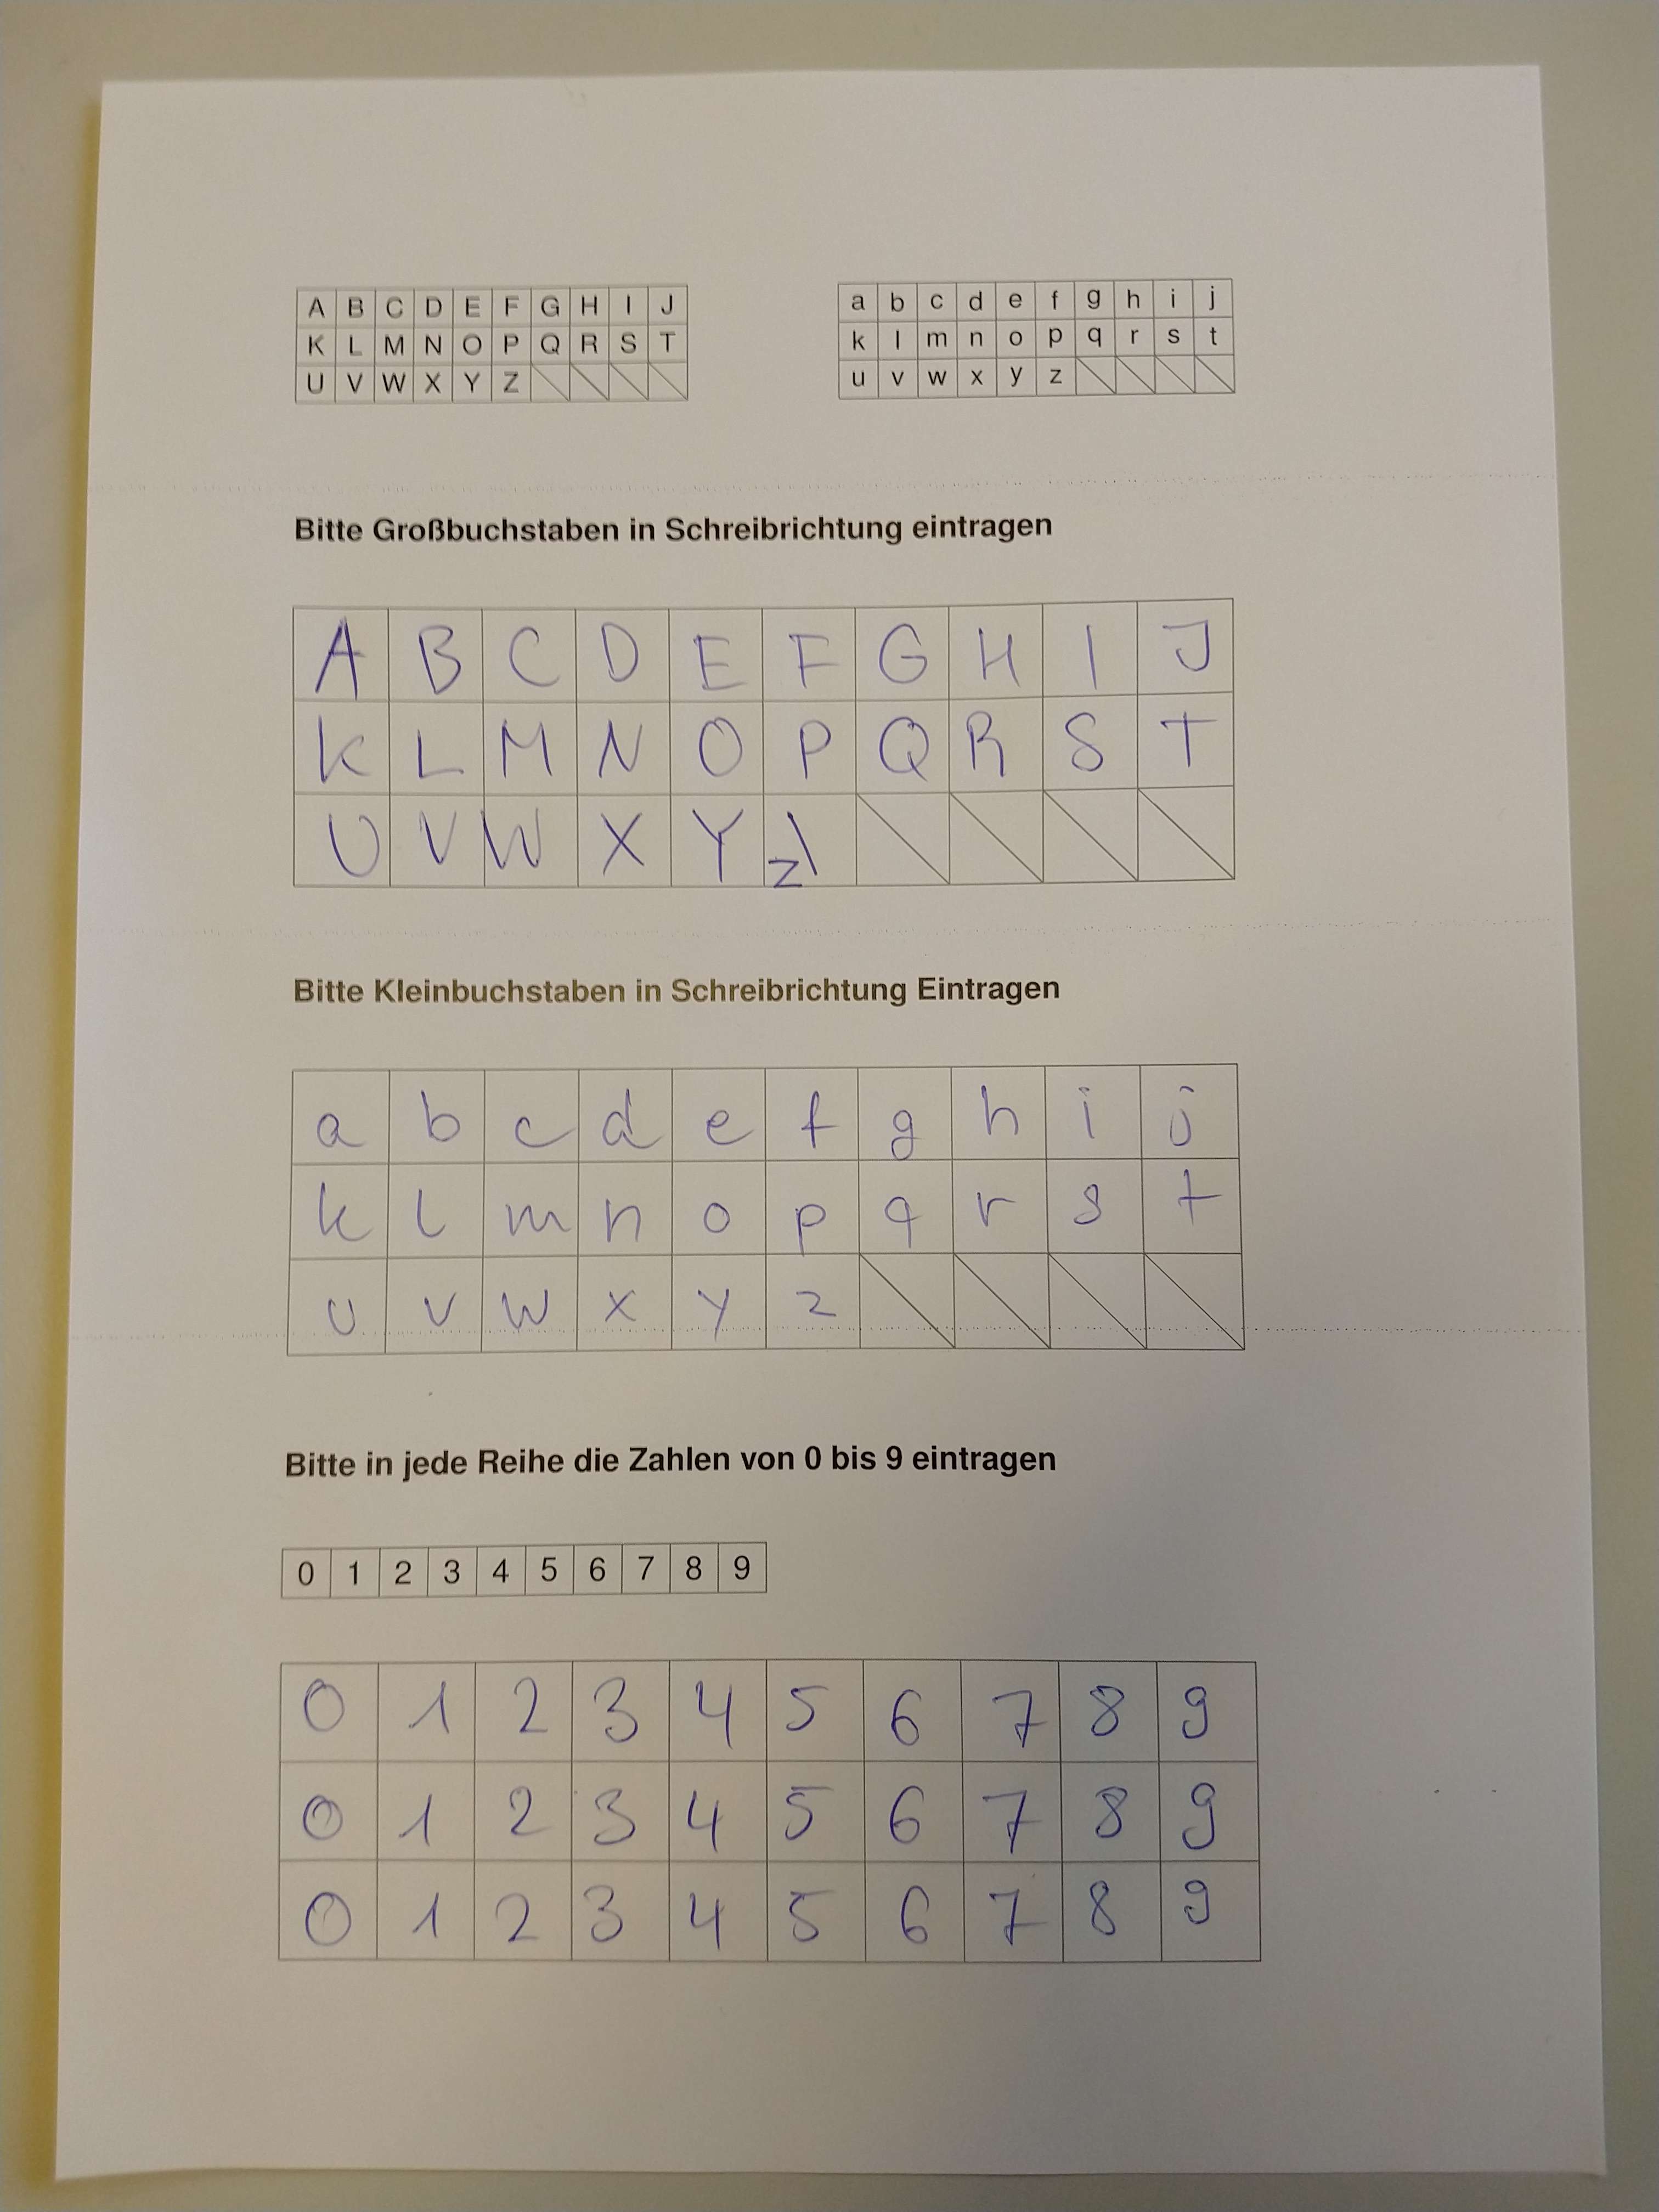 A B C D E F G H I J
K L M N O P Q R S T
U V W X Y Z
a b c d e f g h i j
k l m n o p q r s t
u v w x y z
Bitte Großbuchstaben in Schreibrichtung eintragen
A B C D E F G H I J
K L M N O P Q R S T
U V W X Y Z
Bitte Kleinbuchstaben in Schreibrichtung Eintragen
a b c d e f g h i j
k l m n o p q r s t
u v w x y z
Bitte in jede Reihe die Zahlen von 0 bis 9 eintragen
0 1 2 3 4 5 6 7 8 9
0 1 2 3 4 5 6 7 8 9
0 1 2 3 4 5 6 7 8 9
0 1 2 3 4 5 6 7 8 9